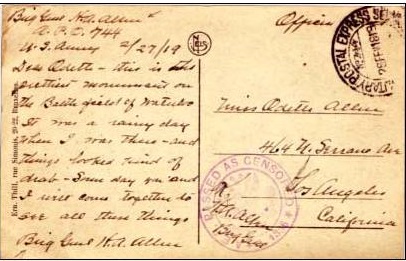 Brig Genl H.A. Allen
A.P.O. 744
U.S. Army 2/27/19
Dear Odette - this is the
prettiest monument on
the Battle field of Waterloo
It was a rainy day
when I was there - and
things looked kind of
drab - Some day you and
I will come together to
see all these things
Brig Genl H.A. Allen
Ern. Thill, rue Simonis, 20-22, Bruxelles
Official
POSTAL EXPRESS SER
Miss Odette Allen
464 N. Serrano Ave
Los Angeles
California
PASSED AS CENSORED
H.A. Allen
Brig Gen